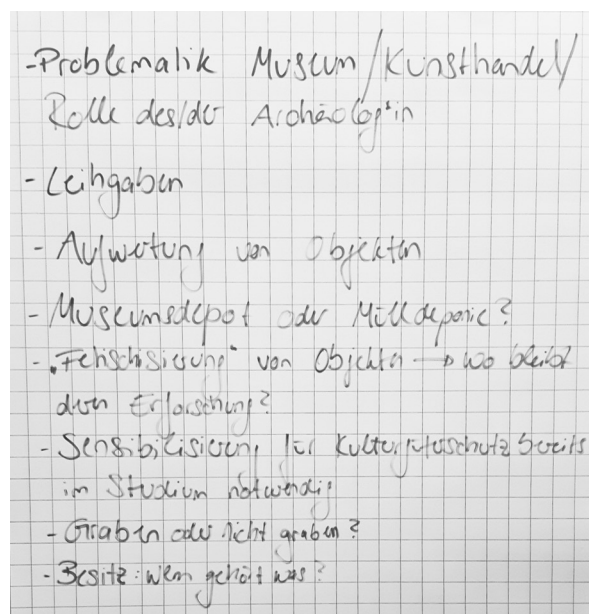 - Problematik Museum/Kunsthandel/
Rolle des/der Archäolog*in
- Leihgaben
- Aufwertung von Objekten
- Museumsdepot oder Mülldeponie?
- „Fetischisierung" von Objekten → wo bleibt
deren Erforschung?
- Sensibilisierung für Kulturgutschutz bereits
im Studium notwendig
- Graben oder nicht graben?
- Besitz: wem gehört was?